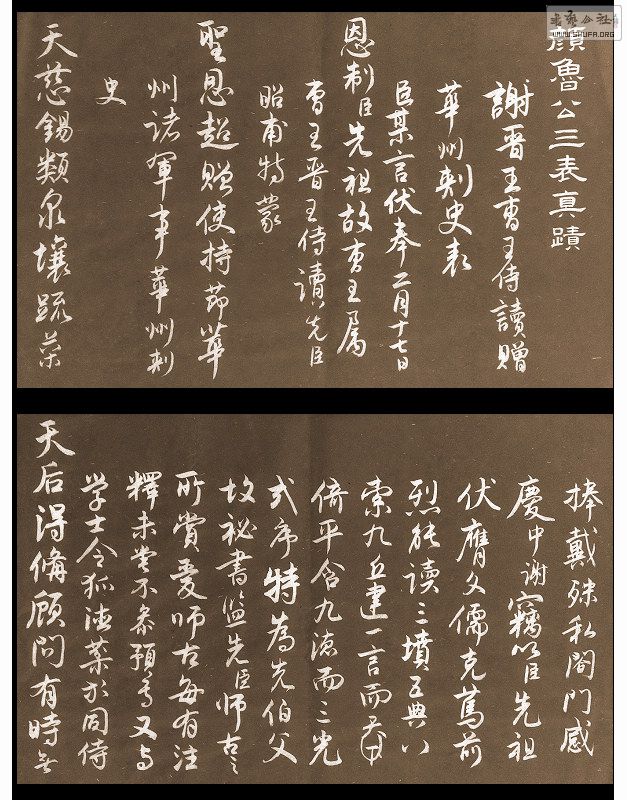 顏魯公三表真蹟
謝晉王曹王侍讀贈
華州刺史表
臣某言伏奉二月十七日
恩制臣先祖故曹王屬
曹王晉王侍讀先臣
昭甫特蒙
聖恩超贈使持節華
州諸軍事華州刺
史
天慈錫類泉壤疏榮
捧戴殊私闔門感
慶中謝竊以臣先祖
伏膺文儒克篤前
烈能讀三墳五典八
索九丘建一言而
倚平含九流而三光
式序特為先伯父
故祕書監先臣師古之
所賞愛師古每有注
釋未嘗不參預焉又与
学士令狐德棻於同侍
天后得備顧問有時
书艺公社
WWW.SHUFA.ORG